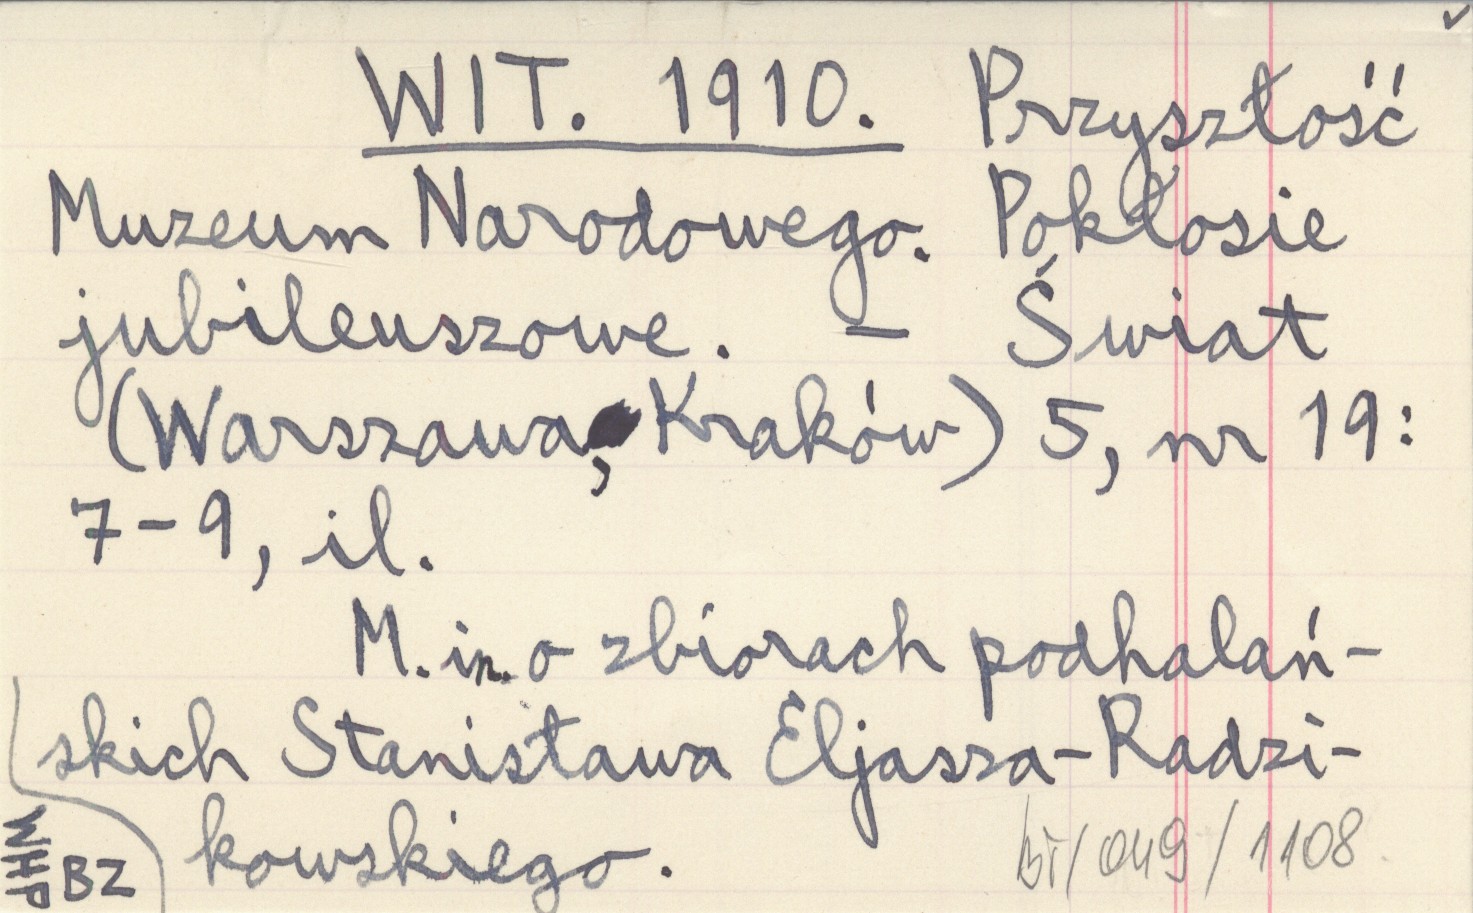 WIT. 1910. Przyszłość
Muzeum Narodowego. Pokłosie
jubileuszowe. – Świat
(Warszawa, Kraków) 5, nr 19:
7–9, il.
M. in. o zbiorach podhalań-
skich Stanisława Eljasza-Radzi-
kowskiego.
WHP
BZ
/ 049 / 1108